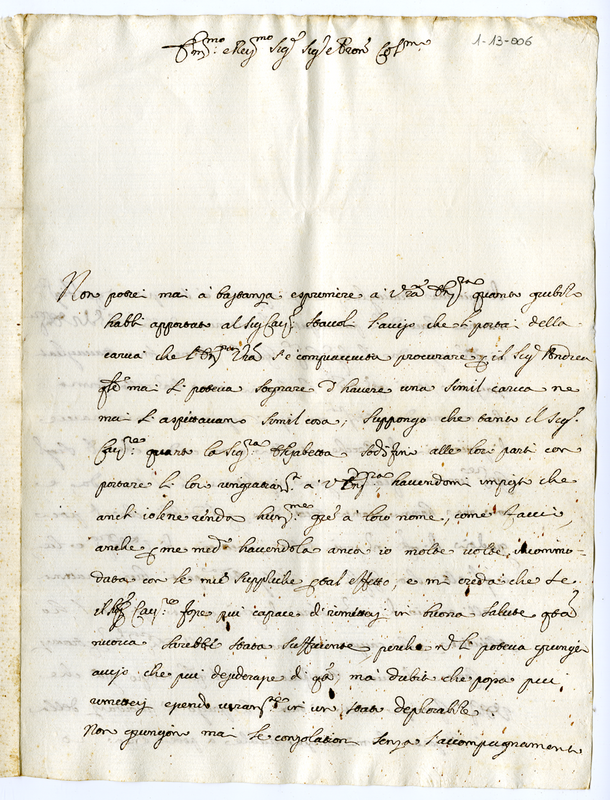 1-13-006
Ill.mo e Rev.mo Sig.r Sig.r e Pron. Col.mo
Non potrei mai a bastanza esprimere a V.ra Ill.ma quanto giubilo
habbi apportato al Sig. Cav.re Staccoli l'aviso che li porta della
carica che V.ra s'è compiacciuta procurare p il Sig.r Andrea
q.le mai si poteva sognare d'havere una simil carica ne
mai s'aspettavano simil cosa; suppongo che tanto il Sig.r
Cav.re quanto la Sig.ra Elisabetta sodisfino alle loro parti con
portare li loro ringratiam.ti a V. havendomi imposto che
anch'io le ne renda hum.me gre à loro nome, come faccio,
anche p me med.o havendola anco io molte volte, incommo-
data con le mie suppliche p tal effetto, e mi creda che se
il Sig.r Cav.re fosse più capace di rimettersi in buona salute q.ta
nuova sarebbe stata sufficiente, perche n li poteva giunger
aviso che più desiderasse di q.to; mà dubito che possa più
rimettersi essendo veram.te in un stato deplorabile.
Non giungon mai le consolationi senza l'accompagnamento